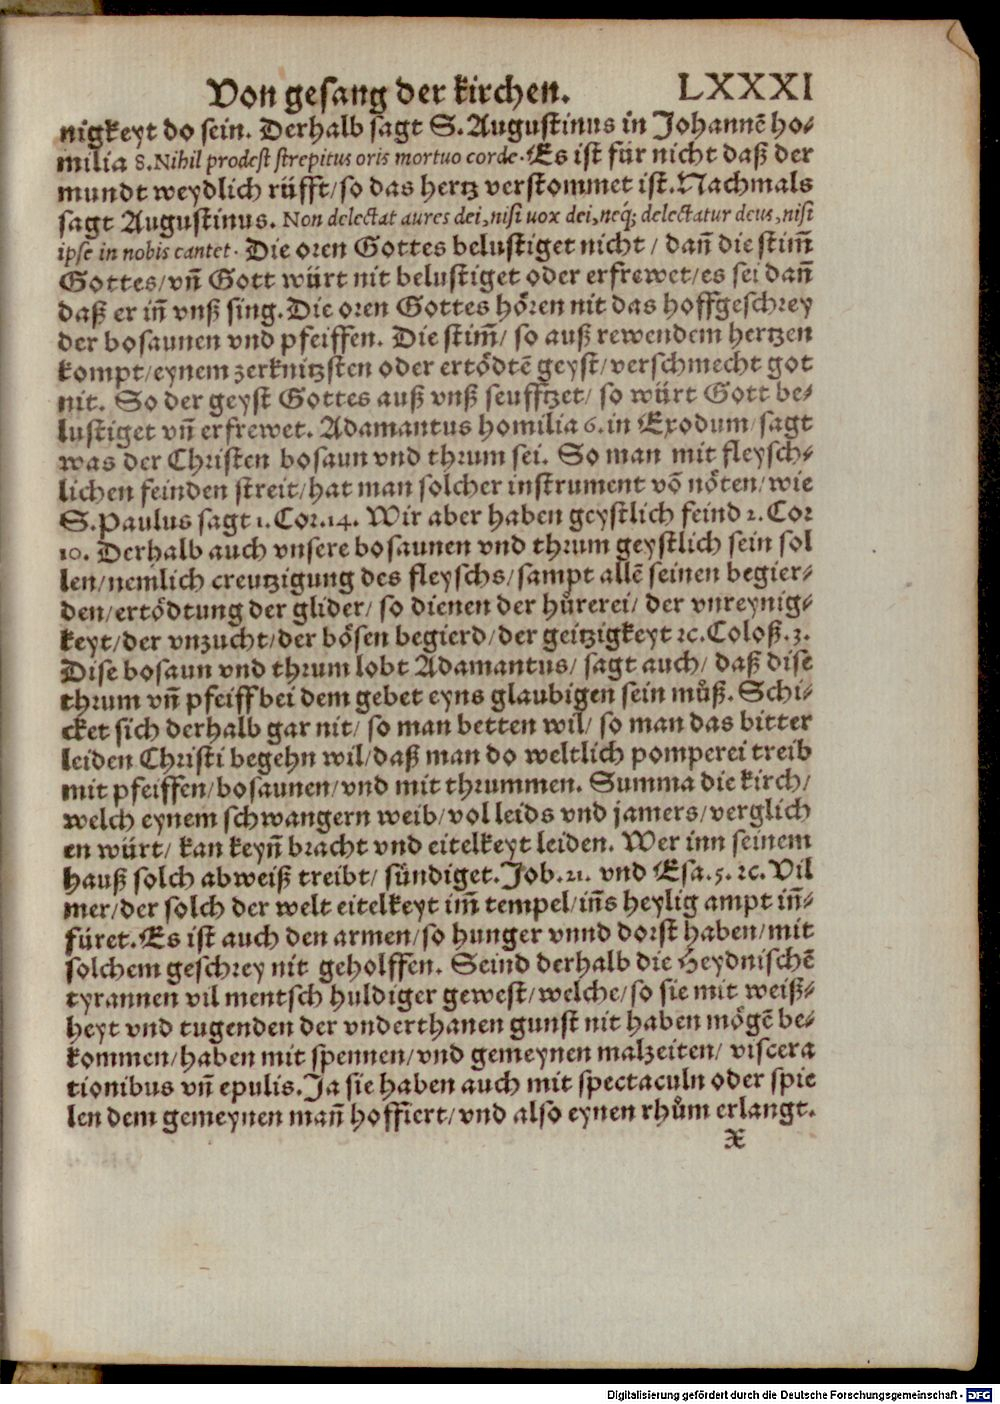 Von gesang der kirchen. LXXXI
nigkeyt do sein. Derhalb sagt S. Augustinus in Johannē ho⸗
milia 8. Nihil prodest strepitus oris mortuo corde. Es ist für nicht daß der
mundt weydlich rüfft/ so das hertz verstommet ist. Nachmals
sagt Augustinus. Non delectat aures dei, nisi uox dei, neq́; delectatur deus, nisi
ipse in nobis cantet. Die oren Gottes belustiget nicht/ dañ die stim̃
Gottes/ vñ Gott würt nit belustiget oder erfrewet/ es sei dañ
daß er iñ vnß sing. Die oren Gottes hören nit das hoffgeschrey
der bosaunen vnd pfeiffen. Die stim̃/ so auß rewendem hertzen
kompt/ eynem zerknitzsten oder ertödtē geyst/ verschmecht got
nit. So der geyst Gottes auß vnß seufftzet/ so würt Gott be⸗
lustiget vñ erfrewet. Adamantus homilia 6. in Exodum/ sagt
was der Christen bosaun vnd thrum sei. So man mit fleysch⸗
lichen feinden streit/ hat man solcher instrument vō nöten/ wie
S. Paulus sagt 1. Cor. 14. Wir aber haben geystlich feind 2. Cor
10. Derhalb auch vnsere bosaunen vnd thrum geystlich sein sol
len/ nemlich creutzigung des fleyschs/ sampt allē seinen begier⸗
den/ ertödtung der glider/ so dienen der hůrerei/ der vnreynig⸗
keyt/ der vnzucht/ der bösen begierd/ der geitzigkeyt ꝛc. Coloß. 3.
Dise bosaun vnd thrum lobt Adamantus/ sagt auch/ daß dise
thrum vñ pfeiff bei dem gebet eyns glaubigen sein můß. Schi⸗
cket sich derhalb gar nit/ so man betten wil/ so man das bitter
leiden Christi begehn wil/ daß man do weltlich pomperei treib
mit pfeiffen/ bosaunen/ vnd mit thrummen. Summa die kirch/
welch eynem schwangern weib/ vol leids vnd jamers/ verglich
en würt/ kan keyñ bracht vnd eitelkeyt leiden. Wer inn seinem
hauß solch abweiß treibt/ sündiget. Job. 21. vnd Esa. 5. ꝛc. Vil
mer/ der solch der welt eitelkeyt im̃ tempel/ iñs heylig ampt iñ⸗
füret. Es ist auch den armen/ so hunger vnnd dorst haben/ mit
solchem geschrey nit geholffen. Seind derhalb die Heydnischē
tyrannen vil mentsch huldiger gewest/ welche/ so sie mit weiß⸗
heyt vnd tugenden der vnderthanen gunst nit haben mögē be⸗
kommen/ haben mit spennen/ vnd gemeynen malzeiten/ viscera
tionibus vñ epulis. Ja sie haben auch mit spectaculn oder spie
len dem gemeynen mañ hoffiert/ vnd also eynen rhům erlangt.
X
Digitalisierung gefördert durch die Deutsche Forschungsgemeinschaft - DFG